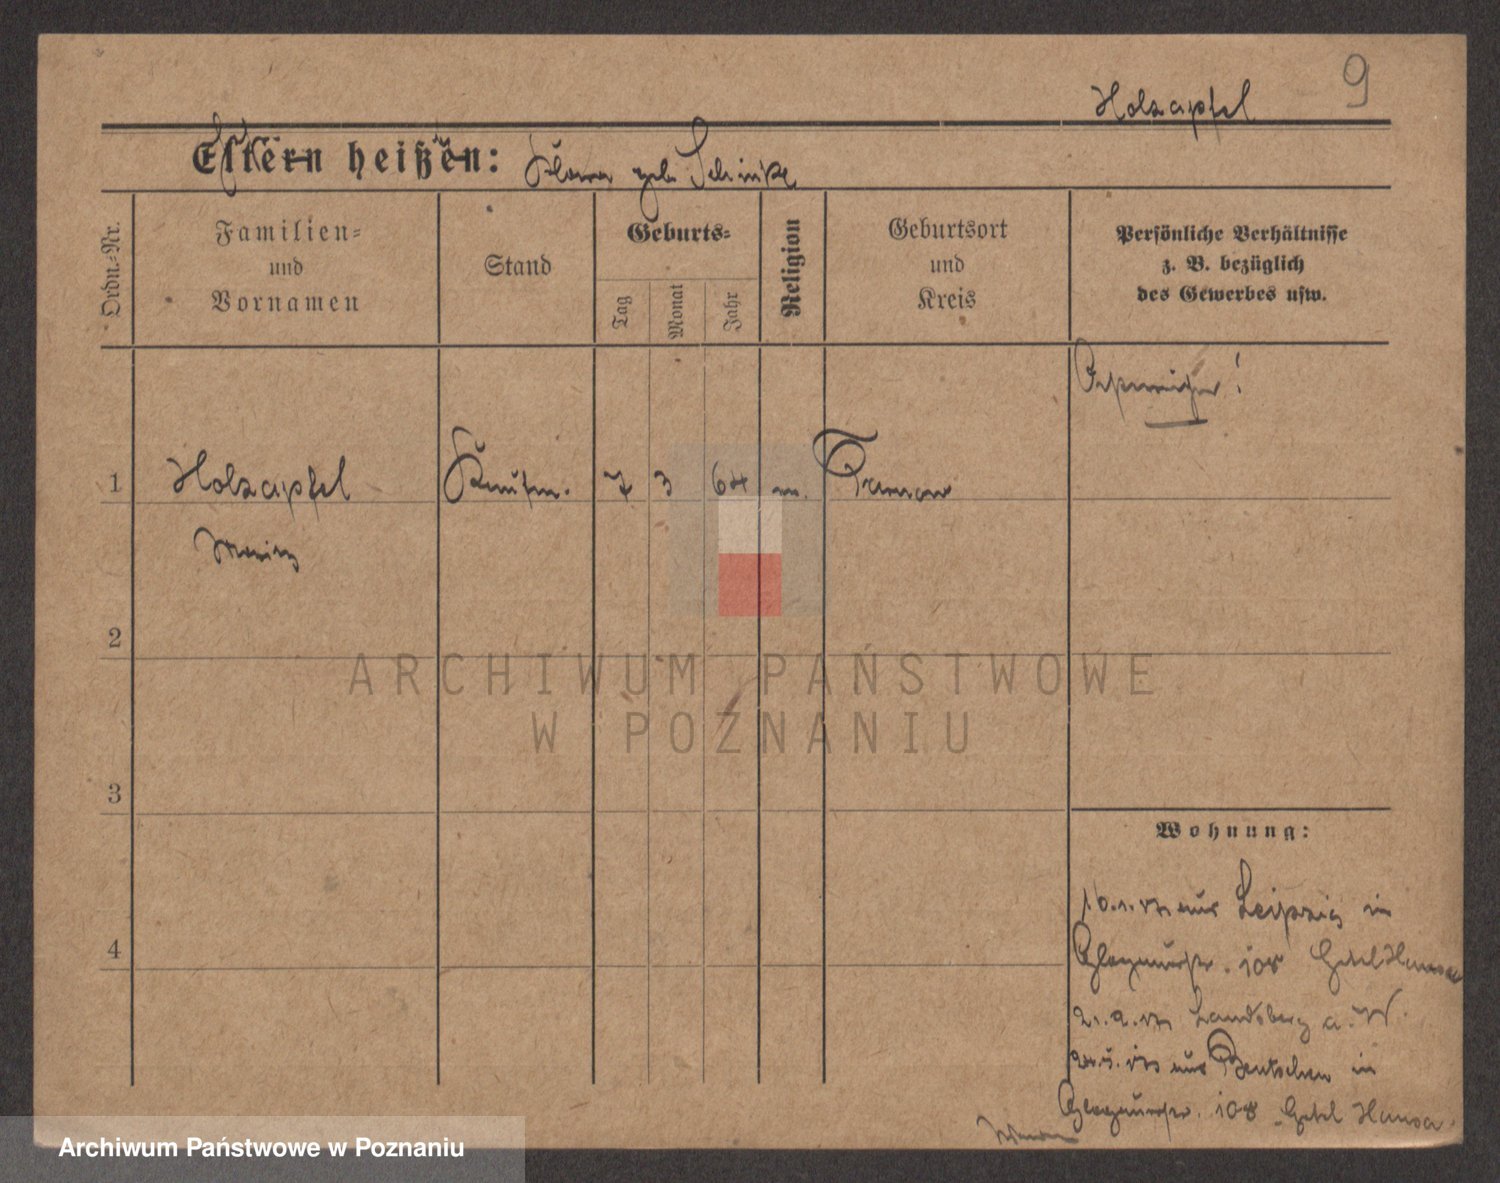 9
Holzapfel
Eltern heißen: geb. Schinke
Ordn.-Nr.
Familien-
und
Vornamen
Stand
Geburts-
Tag
Monat
Jahr
Religion
Geburtsort
und
Kreis
Persönliche Verhältnisse
z. B. bezüglich
des Gewerbes usw.
1
Holzapfel
Kaufm.
7
3
64
m.
Moritz
2
3
4
Wohnung:
aus Leipzig in
Glogauerstr. 108 Hotel Hansa
Landsberg a. W.
aus Bentschen in
Glogauerstr. 108 Hotel Hansa
ARCHIWUM PAŃSTWOWE
W POZNANIU
Archiwum Państwowe w Poznaniu